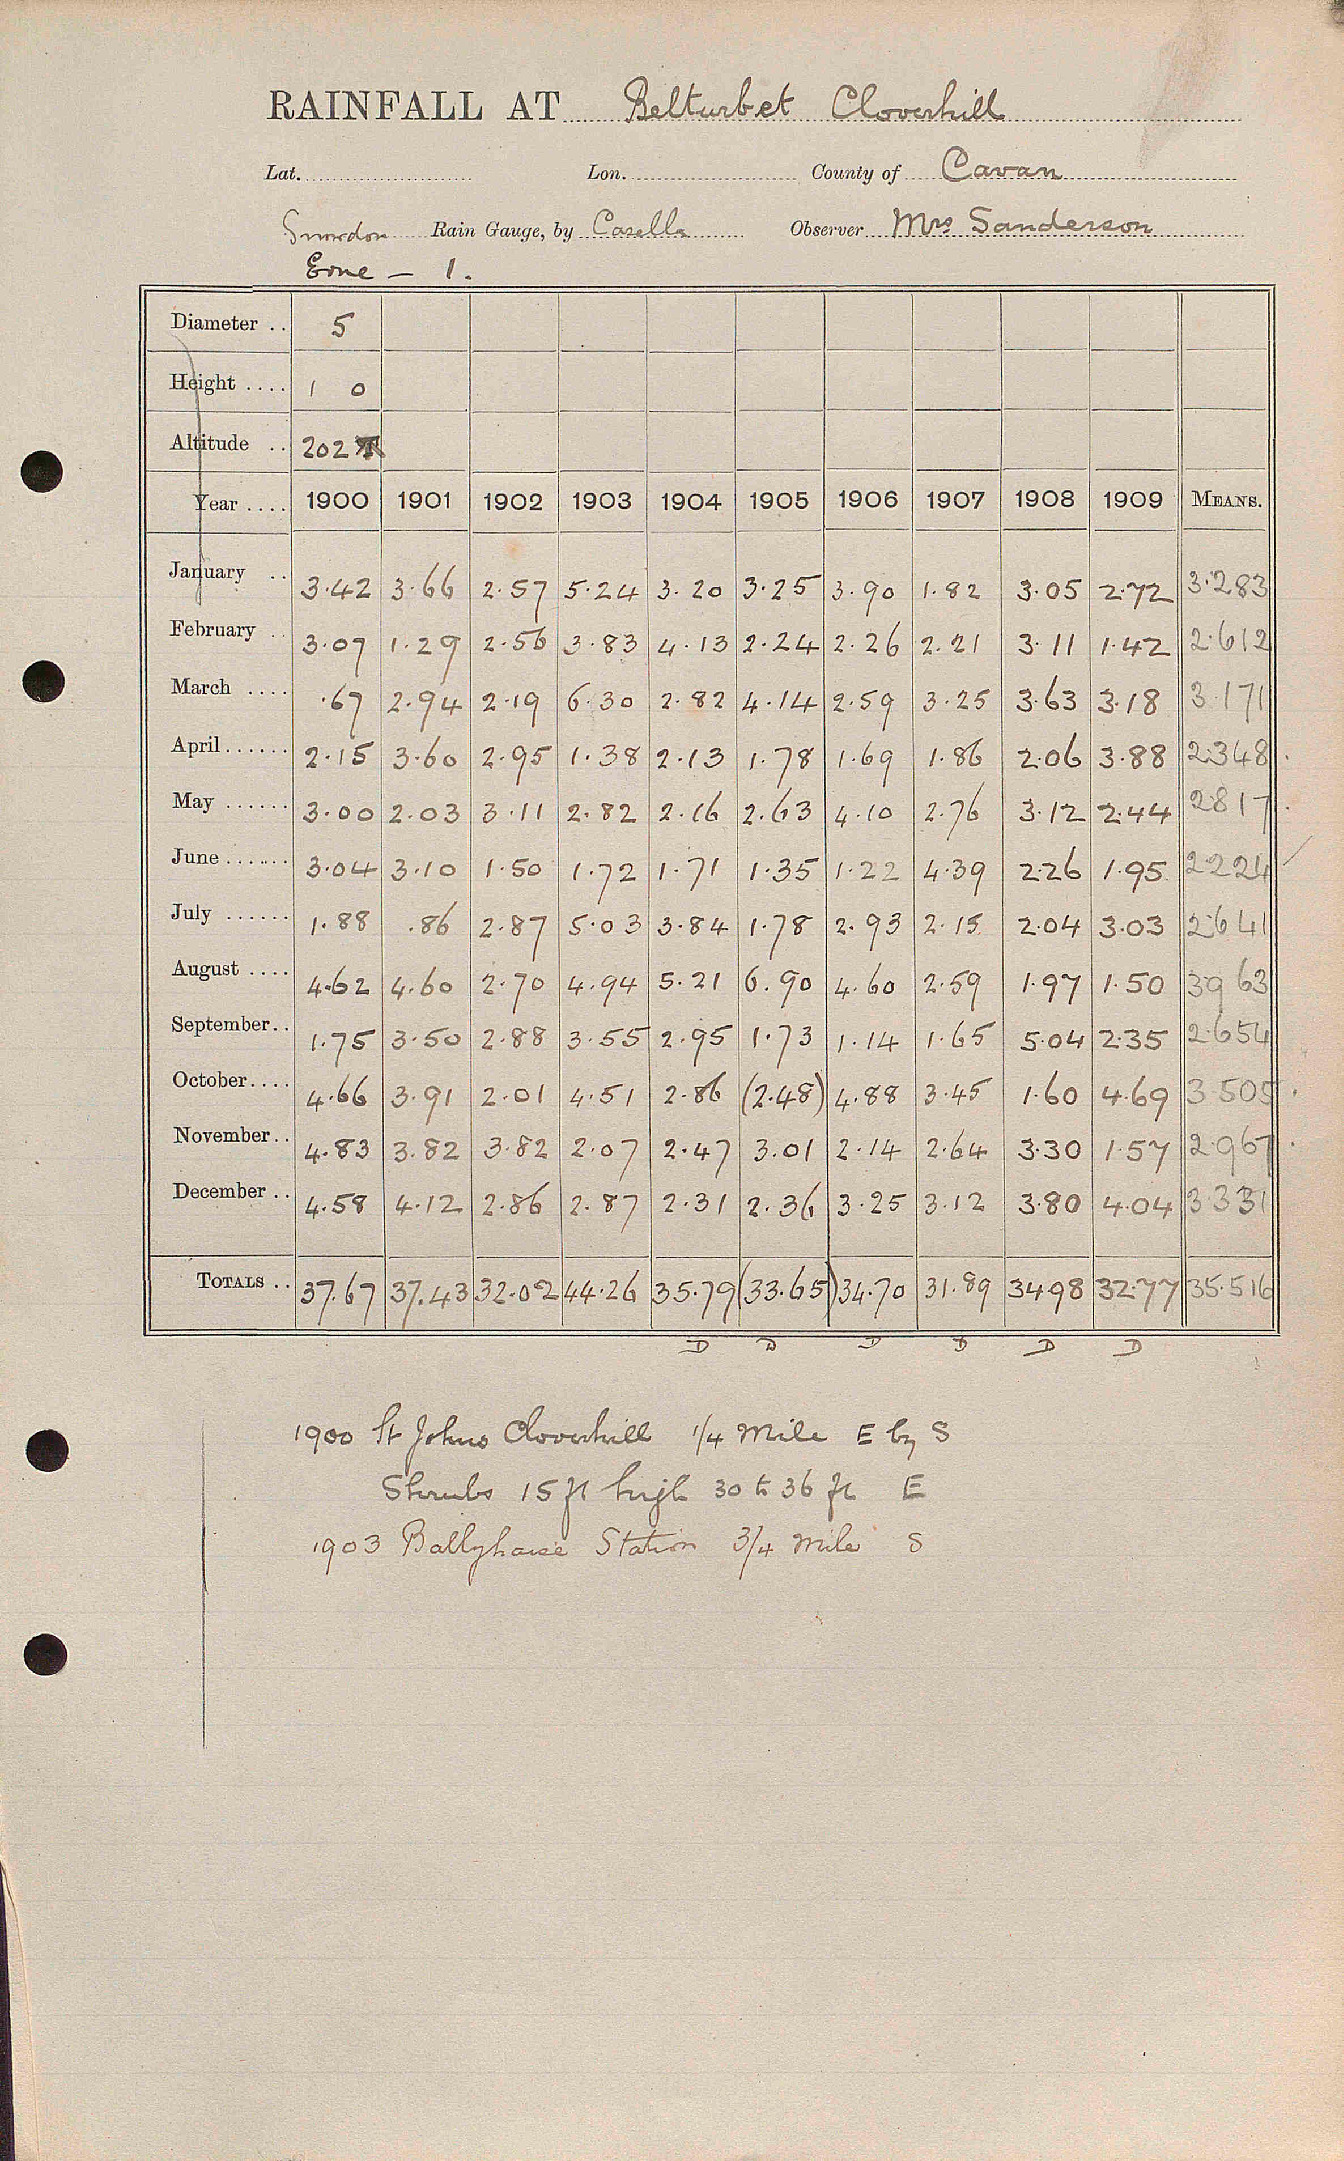 RAINFALL AT Belturbet Cloverhill
Lat. Lon. County of Cavan
Snowdon Rain Gauge, by Casella Observer Mrs Sanderson
Erne — 1.
Diameter .. 5
Height .... 1 0
Altitude .. 202
Year .... 1900 1901 1902 1903 1904 1905 1906 1907 1908 1909 MEANS.
January .. 3.42 3.66 2.57 5.24 3.20 3.25 3.90 1.82 3.05 2.72 3.283
February .. 3.07 1.29 2.56 3.83 4.13 2.24 2.26 2.21 3.11 1.42 2.612
March .... .67 2.94 2.19 6.30 2.82 4.14 2.59 3.25 3.63 3.18 3.171
April...... 2.15 3.60 2.95 1.38 2.13 1.78 1.69 1.86 2.06 3.88 2.348
May ...... 3.00 2.03 3.11 2.82 2.16 2.63 4.10 2.76 3.12 2.44 2.817
June ...... 3.04 3.10 1.50 1.72 1.71 1.35 1.22 4.39 2.26 1.95 2.224
July ...... 1.88 .86 2.87 5.03 3.84 1.78 2.93 2.15 2.04 3.03 2.641
August .... 4.62 4.60 2.70 4.94 5.21 6.90 4.60 2.59 1.97 1.50 3963
September.. 1.75 3.50 2.88 3.55 2.95 1.73 1.14 1.65 5.04 2.35 2.654
October.... 4.66 3.91 2.01 4.51 2.86 (2.48) 4.88 3.45 1.60 4.69 3.505
November.. 4.83 3.82 3.82 2.07 2.47 3.01 2.14 2.64 3.30 1.57 2.967
December .. 4.58 4.12 2.86 2.87 2.31 2.36 3.25 3.12 3.80 4.04 3.331
TOTALS .. 37.67 37.43 32.02 44.26 35.79 (33.65) 34.70 31.89 34.98 32.77 35.516
D D D D D D
1900 St Johns Cloverhill 1/4 Mile E by S
Shrubs 15 ft high 30 to 36 ft E
1903 Ballyhaise Station 3/4 Mile S